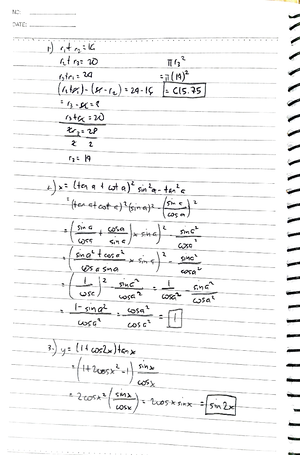 NO:
DATE:
1.) r₁ + r₂ = 16
r₂ + r₃ = 20 π r₃²
r₃ + r₁ = 24 = π (14)²
(r₃ + r₁) - (r₁ - r₂) = 24 - 16 = 615.75
= r₃ - r₂ = 8
r₃ + r₂ = 20
2r₃ = 28
2 2
r₃ = 14
2.) x = (tan a + cot a)² sin²a - tan²a
= (tan a + cot a)² (sin a)² - (sin a / cos a)²
= ((sin a / cos a + cos a / sin a) × sin a)² - sin a² / cos a²
= ((sin a² + cos a² / cos a sin a) × sin a)² - sin a² / cos a²
= (1 / cos a)² - sin a² / cos a² = 1 / cos a² - sin a² / cos a²
= 1 - sin a² / cos a² = cos a² / cos a² = 1
3.) y = (1 + cos 2x) tan x
= (1 + 2cos x² - 1) sin x / cos x
= 2cos x² (sin x / cos x) = 2cos x sin x = sin 2x